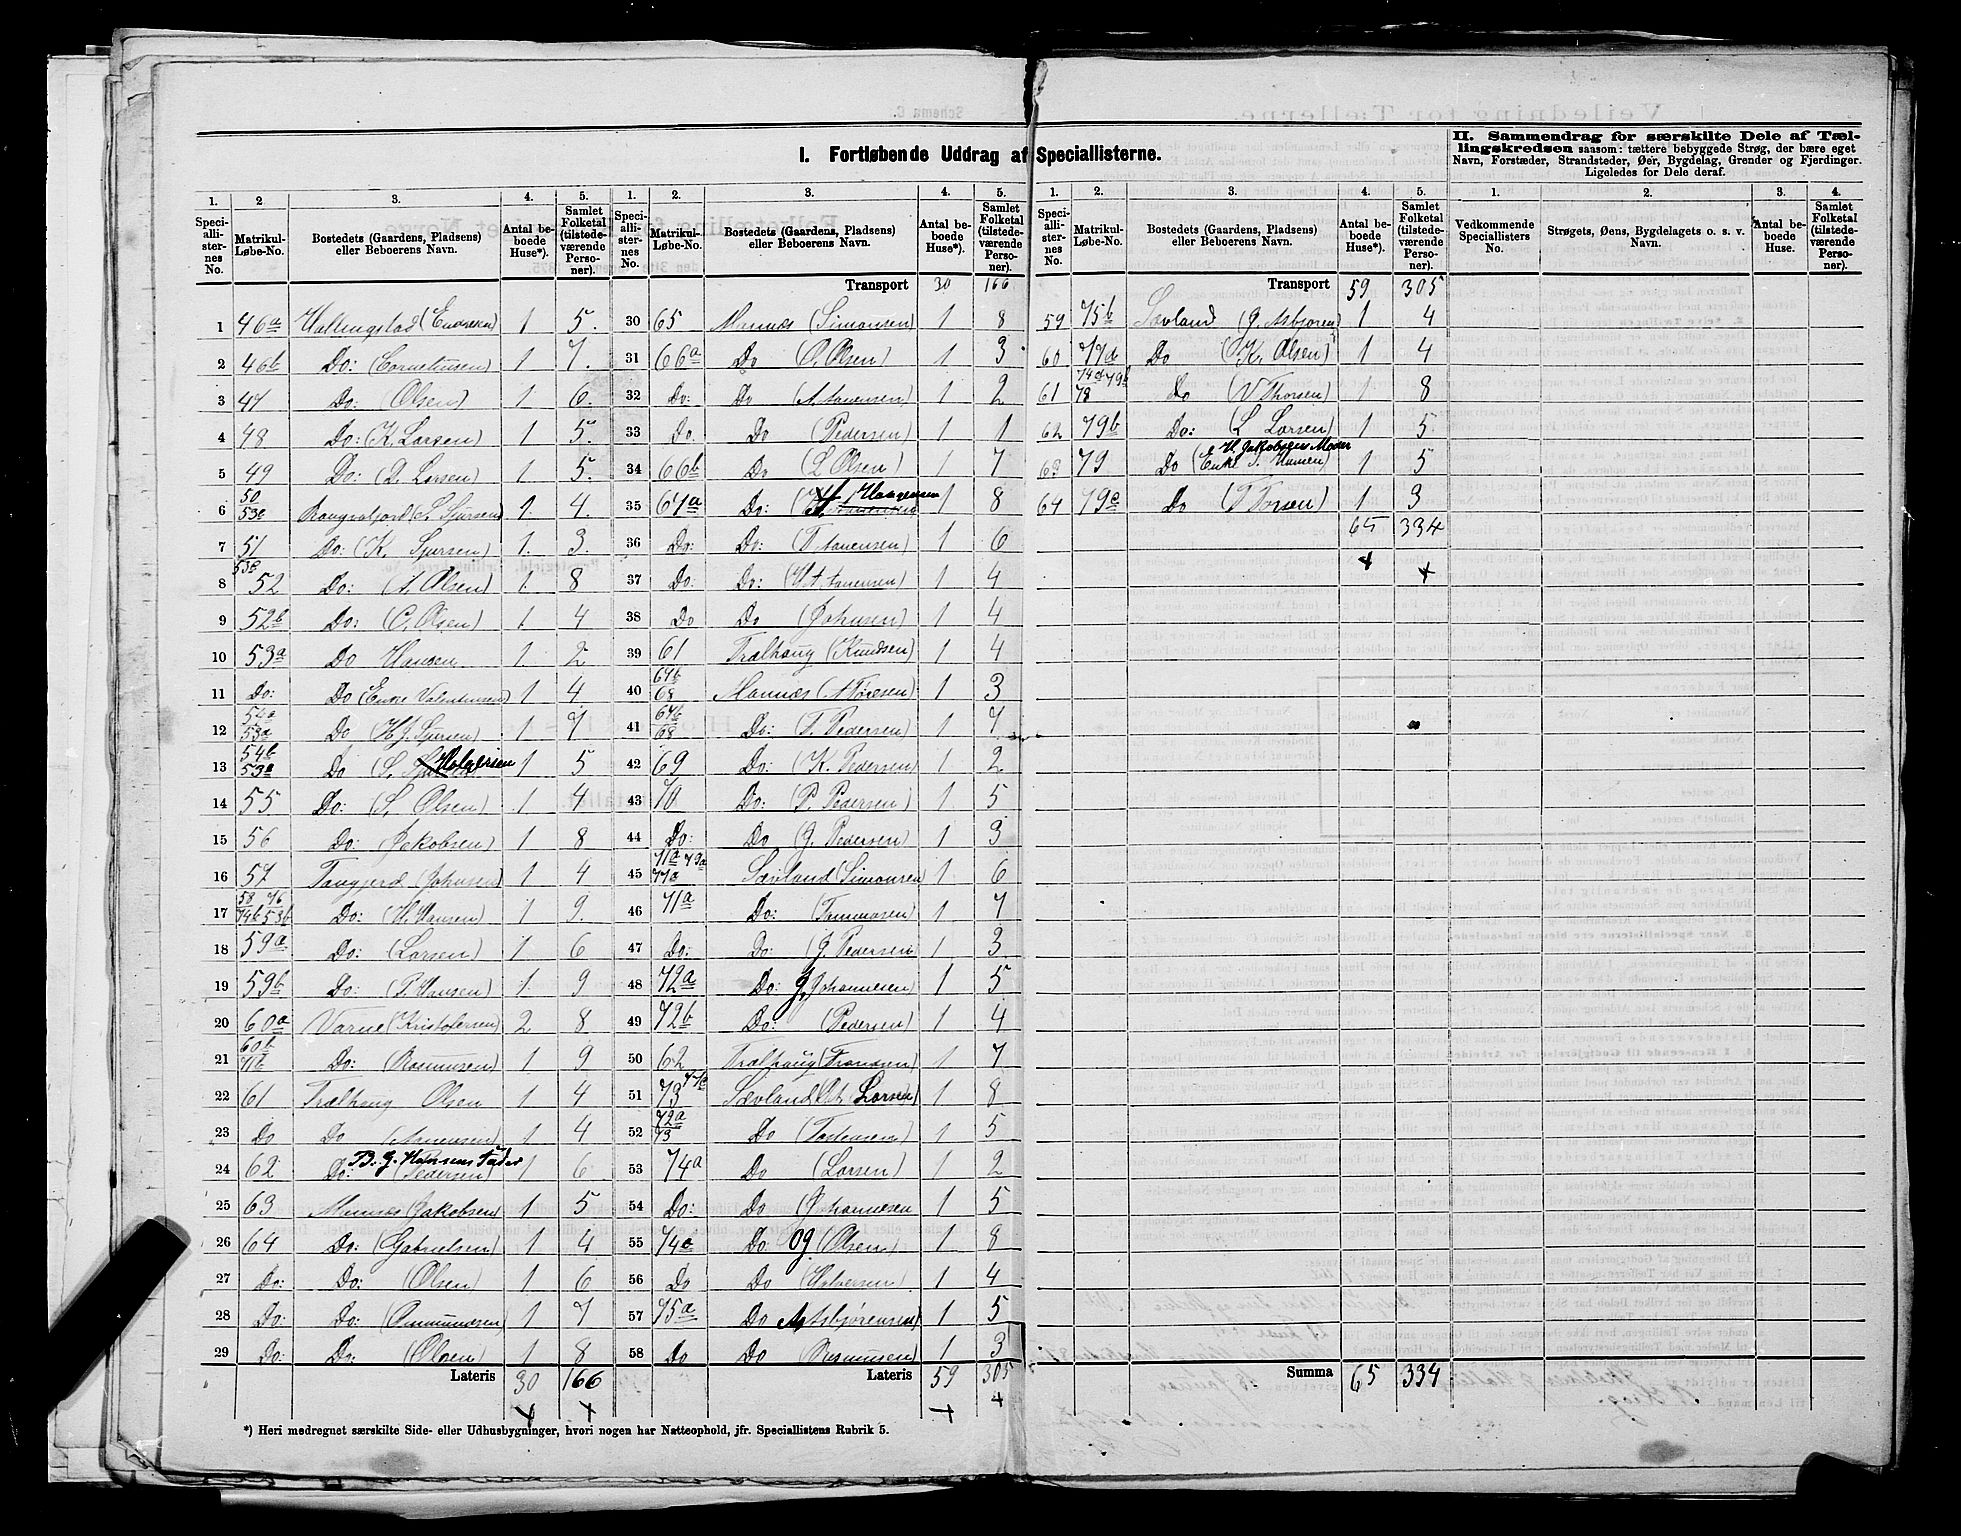 I. Fortløbende Uddrag af Speciallisterne.
II. Sammendrag for særskilte Dele af Tællingskredsen saasom: tættere bebyggede Strøg, der bære eget Navn, Forstæder, Strandsteder, Øer, Bygdelag, Grender og Fjerdinger. Ligeledes for Dele deraf.
1. 2 3. 4. 5. 1. 2. 3. 4. 5. 1. 2. 3. 4. 5. 1. 2. 3. 4.
Speciallisternes No. Matrikul-Løbe-No. Bostedets (Gaardens, Pladsens) eller Beboerens Navn. Antal beboede Huse*). Samlet Folketal (tilstedeværende Personer).
Speciallisternes No. Matrikul-Løbe-No. Bostedets (Gaardens, Pladsens) eller Beboerens Navn. Antal beboede Huse*). Samlet Folketal (tilstedeværende Personer).
Speciallisternes No. Matrikul-Løbe-No. Bostedets (Gaardens, Pladsens) eller Beboerens Navn. Antal beboede Huse*). Samlet Folketal (tilstedeværende Personer).
Vedkommende Speciallisters No. Strøgets, Øens, Bygdelagets o. s. v. Navn. Antal beboede Huse. Samlet Folketal (tilstedeværende Personer).
1 46a Hallingstad (Endresen) 1 5.
2 46b Do: (Corneliusen) 1 7.
3 47 Do: (Olsen) 1 6.
4 48 Do: (K. Larsen) 1 5.
5 49 Do: (D. Larsen) 1 5.
6 50 53c (L. Sjursen) 1. 4.
7 51 Do: (K. Sjursen) 1. 3.
8 52 Do: (A. Olsen) 1. 8
9 52b Do: (C. Olsen) 1. 4
10 53a Do Hansen 1 2
11 Do: Do (Enke Valentinsen) 1 4
12 54a 53a Do (H J. Sjursen) 1 7
13 54b Do (S. Holgersen 1 5
14 55 Do: (S. Olsen) 1 4
15 56 Do: (Jekobsen) 1 8
16 57 Tangjerd (Johnsen) 1 4
17 58 76 74b 53b Do: (H. Hansen) 1 9.
18 59a Do: (Larsen) 1 6
19 59b Do: (P. Hansen) 1. 9
20 60a Varne (Kristofersen) 2 8
21 60b 71b Do: (Rasmusen) 1 9
22 61 Trælhaug Olsen 1 4
23 Do Do (Aanensen) 1 4
24 62 Do: (Pedersen) 1 6
25 63 Mannes (Jakobsen) 1 5
26 64 Do: (Gabrielsen) 1 4
27 Do: Do: (Olsen) 1 6
28 Do: Do: (Ommundsen) 1 7
29 Do: Do: (Olsen) 1 8
Lateris 30 166
Transport 30 166
30 65 Mannes (Simonsen) 1 8
31 66a Do (O. Olsen) 1 3
32 Do: Do (A. Aanensen) 1 2
33 Do. Do (Pedersen) 1 1
34 66b Do (L Olsen) 1 7
35 67a Do: 1 8
36 Do: Do: (T. Aanensen) 1 6
37 Do: Do: (H A. Aanensen) 1 4
38 Do Do (Johnsen) 1 4
39 61 Trælhaug (Knudsen) 1 4
40 67b 68 Mannes (A Toresen) 1 3
41 67b 68 Do: (T. Pedersen) 1 7
42 69 Do: (K. Pedersen) 1 2
43 70 Do: (P. Pedersen) 1 5
44 Do: Do (J. Pedersen) 1 3
45 71a 79a 77a Sævland (Simonsen) 1 6
46 71a Do: (Tommasen) 1 7
47 Do: Do: (J. Pedersen 1 3
48 72a Do: J. Johannesen) 1 5
49 72b Do: (Pedersen) 1 4
50 62 Trælhaug (Fransen) 1 7
51 73 77c Sævland (A Larsen) 1 8
52 72a 73 Do (Tostensen) 1 5
53 74a Do (Larsen) 1 2
54 Do: Do (Johannesen 1 5
55 74c Do: Og (Olsen) 1 8
56 Do Do (Halversen) 1 4
57 75a Do A. Asbjørensen) 1 5
58 Do Do (Rasmusen) 1 3
Lateris 59 305
Transport 59 305
59 75b Sævland (J. Asbjoren) 1 4
60 77d Do (K. Olsen) 1 4
61 74d 79b 78 Do (V Thorsen) 1 8
62 79b Do: (L Larsen) 1 5
63 79 Do (Enke S. Hansen) H. Jakobsens Moder 1 5
64 79c Do (T Torsen) 1 3
65 334
Summa 65 334
*) Heri medregnet særskilte Side- eller Udhusbygninger, hvori nogen har Natteophold, jfr. Speciallistens Rubrik 5.